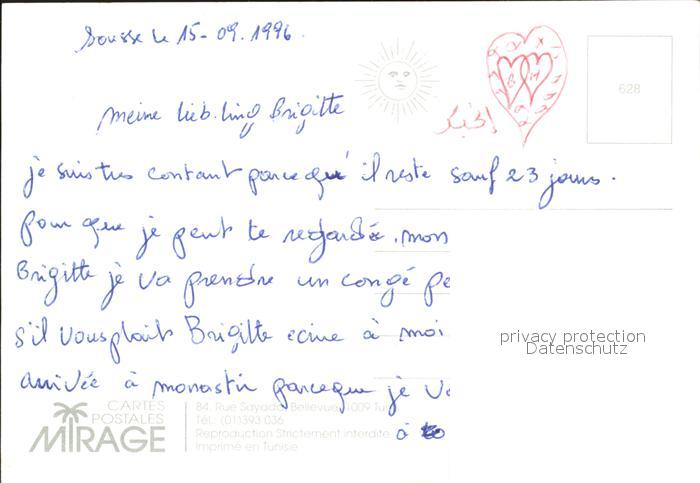 Sousse le 15-09.1996.
628
B M
meine lieb.ling Brigitte
je suis tres contant parceque il reste sauf 23 jours.
pour que je peut te regardée. mon
Brigitte je va prendre un congé pe
s'il vousplait Brigitte ecrire à moi
privacy protection
Datenschutz
arrivée à monastir parceque je va
à
CARTES
POSTALES
MIRAGE
84, Rue Sayada Bellevue 1009 Tu
Tél.: (01)393 036
Reproduction Strictement Interdite
Imprimé en Tunisie